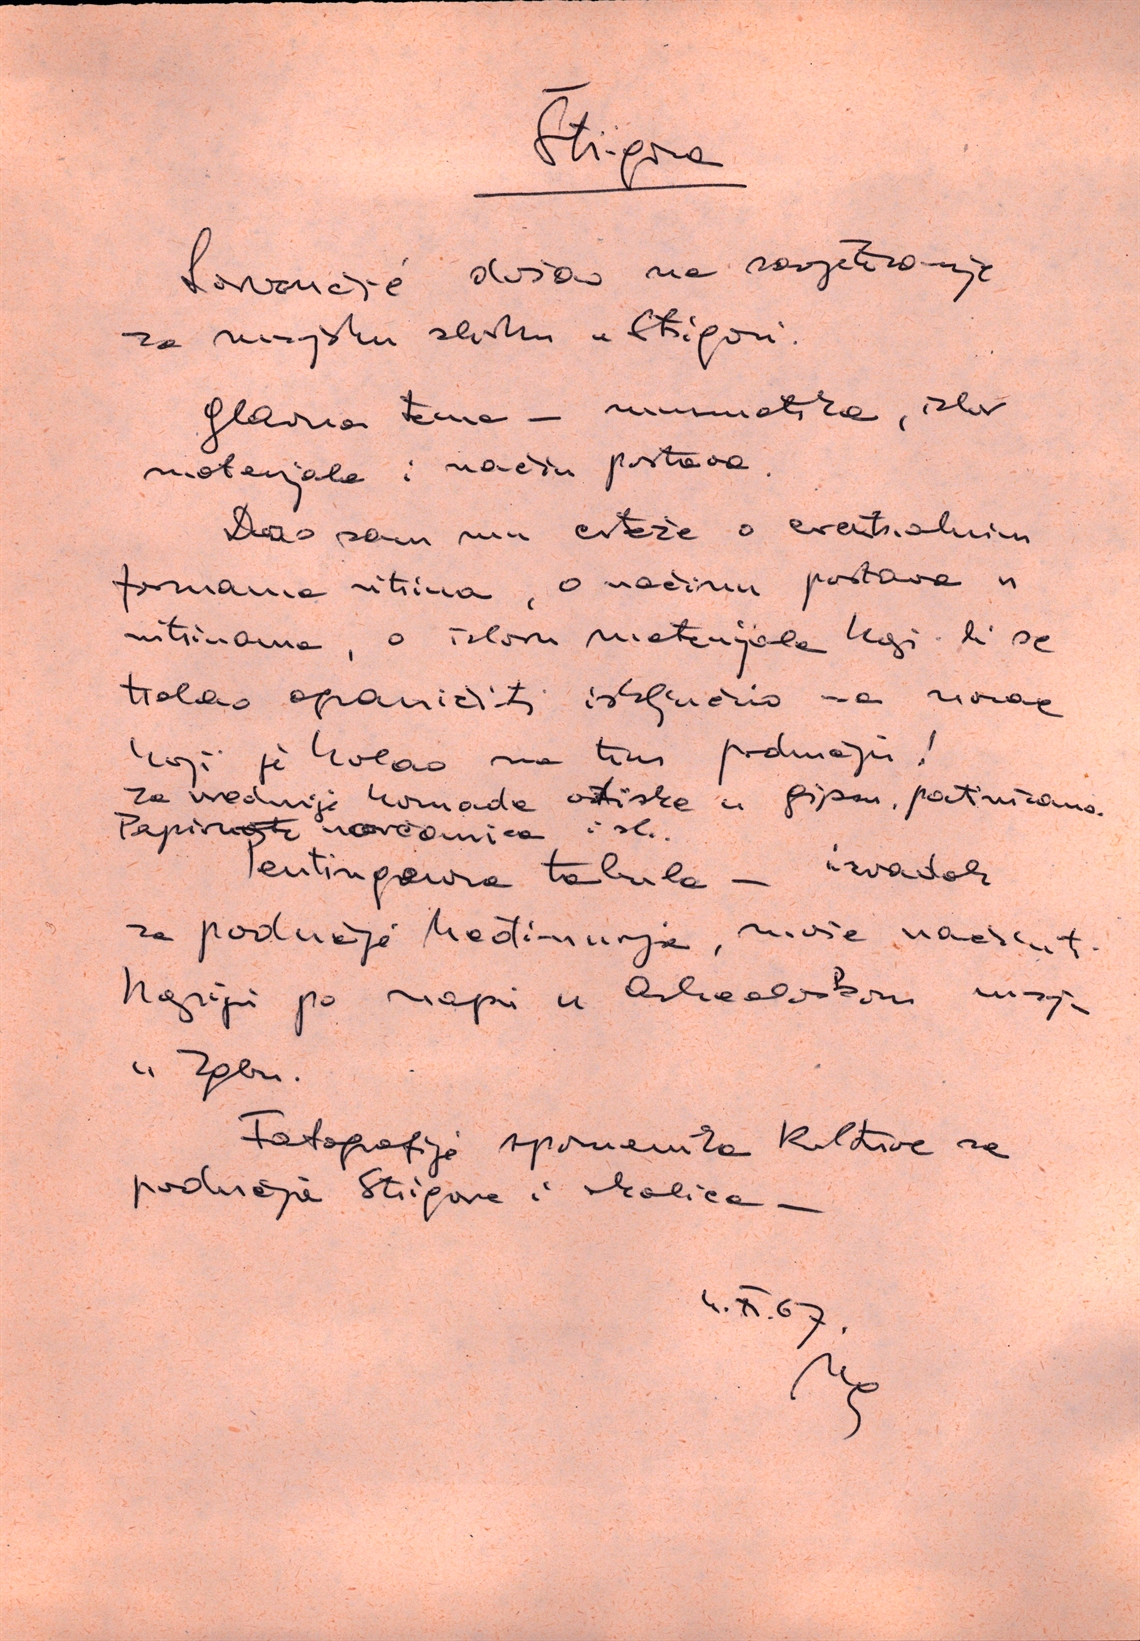 Štrigova
Lovrenčić došao na savjetovanje
za muzejsku zbirku u Štrigovi.
Glavna tema — numizmatika, izbor
materijala i način postava.
Dao sam mu crteže o eventualnim
formama vitrina, o načinu postava u
vitrinama, o izboru materijala koji bi se
trebao ograničiti isključivo na novac
koji je kolao na tom području!
Za vrednije komade otiske u gipsu, patinirano.
Papirnate novčanice i sl.
Peutingerova tabula — izvadak
za područje Međimurja, može načinit
kopiju po mapi u Arheološkom muzeju
u Zgbu.
Fotografije spomenika kulture sa
područja Štrigove i okolice —
4.XI.67.